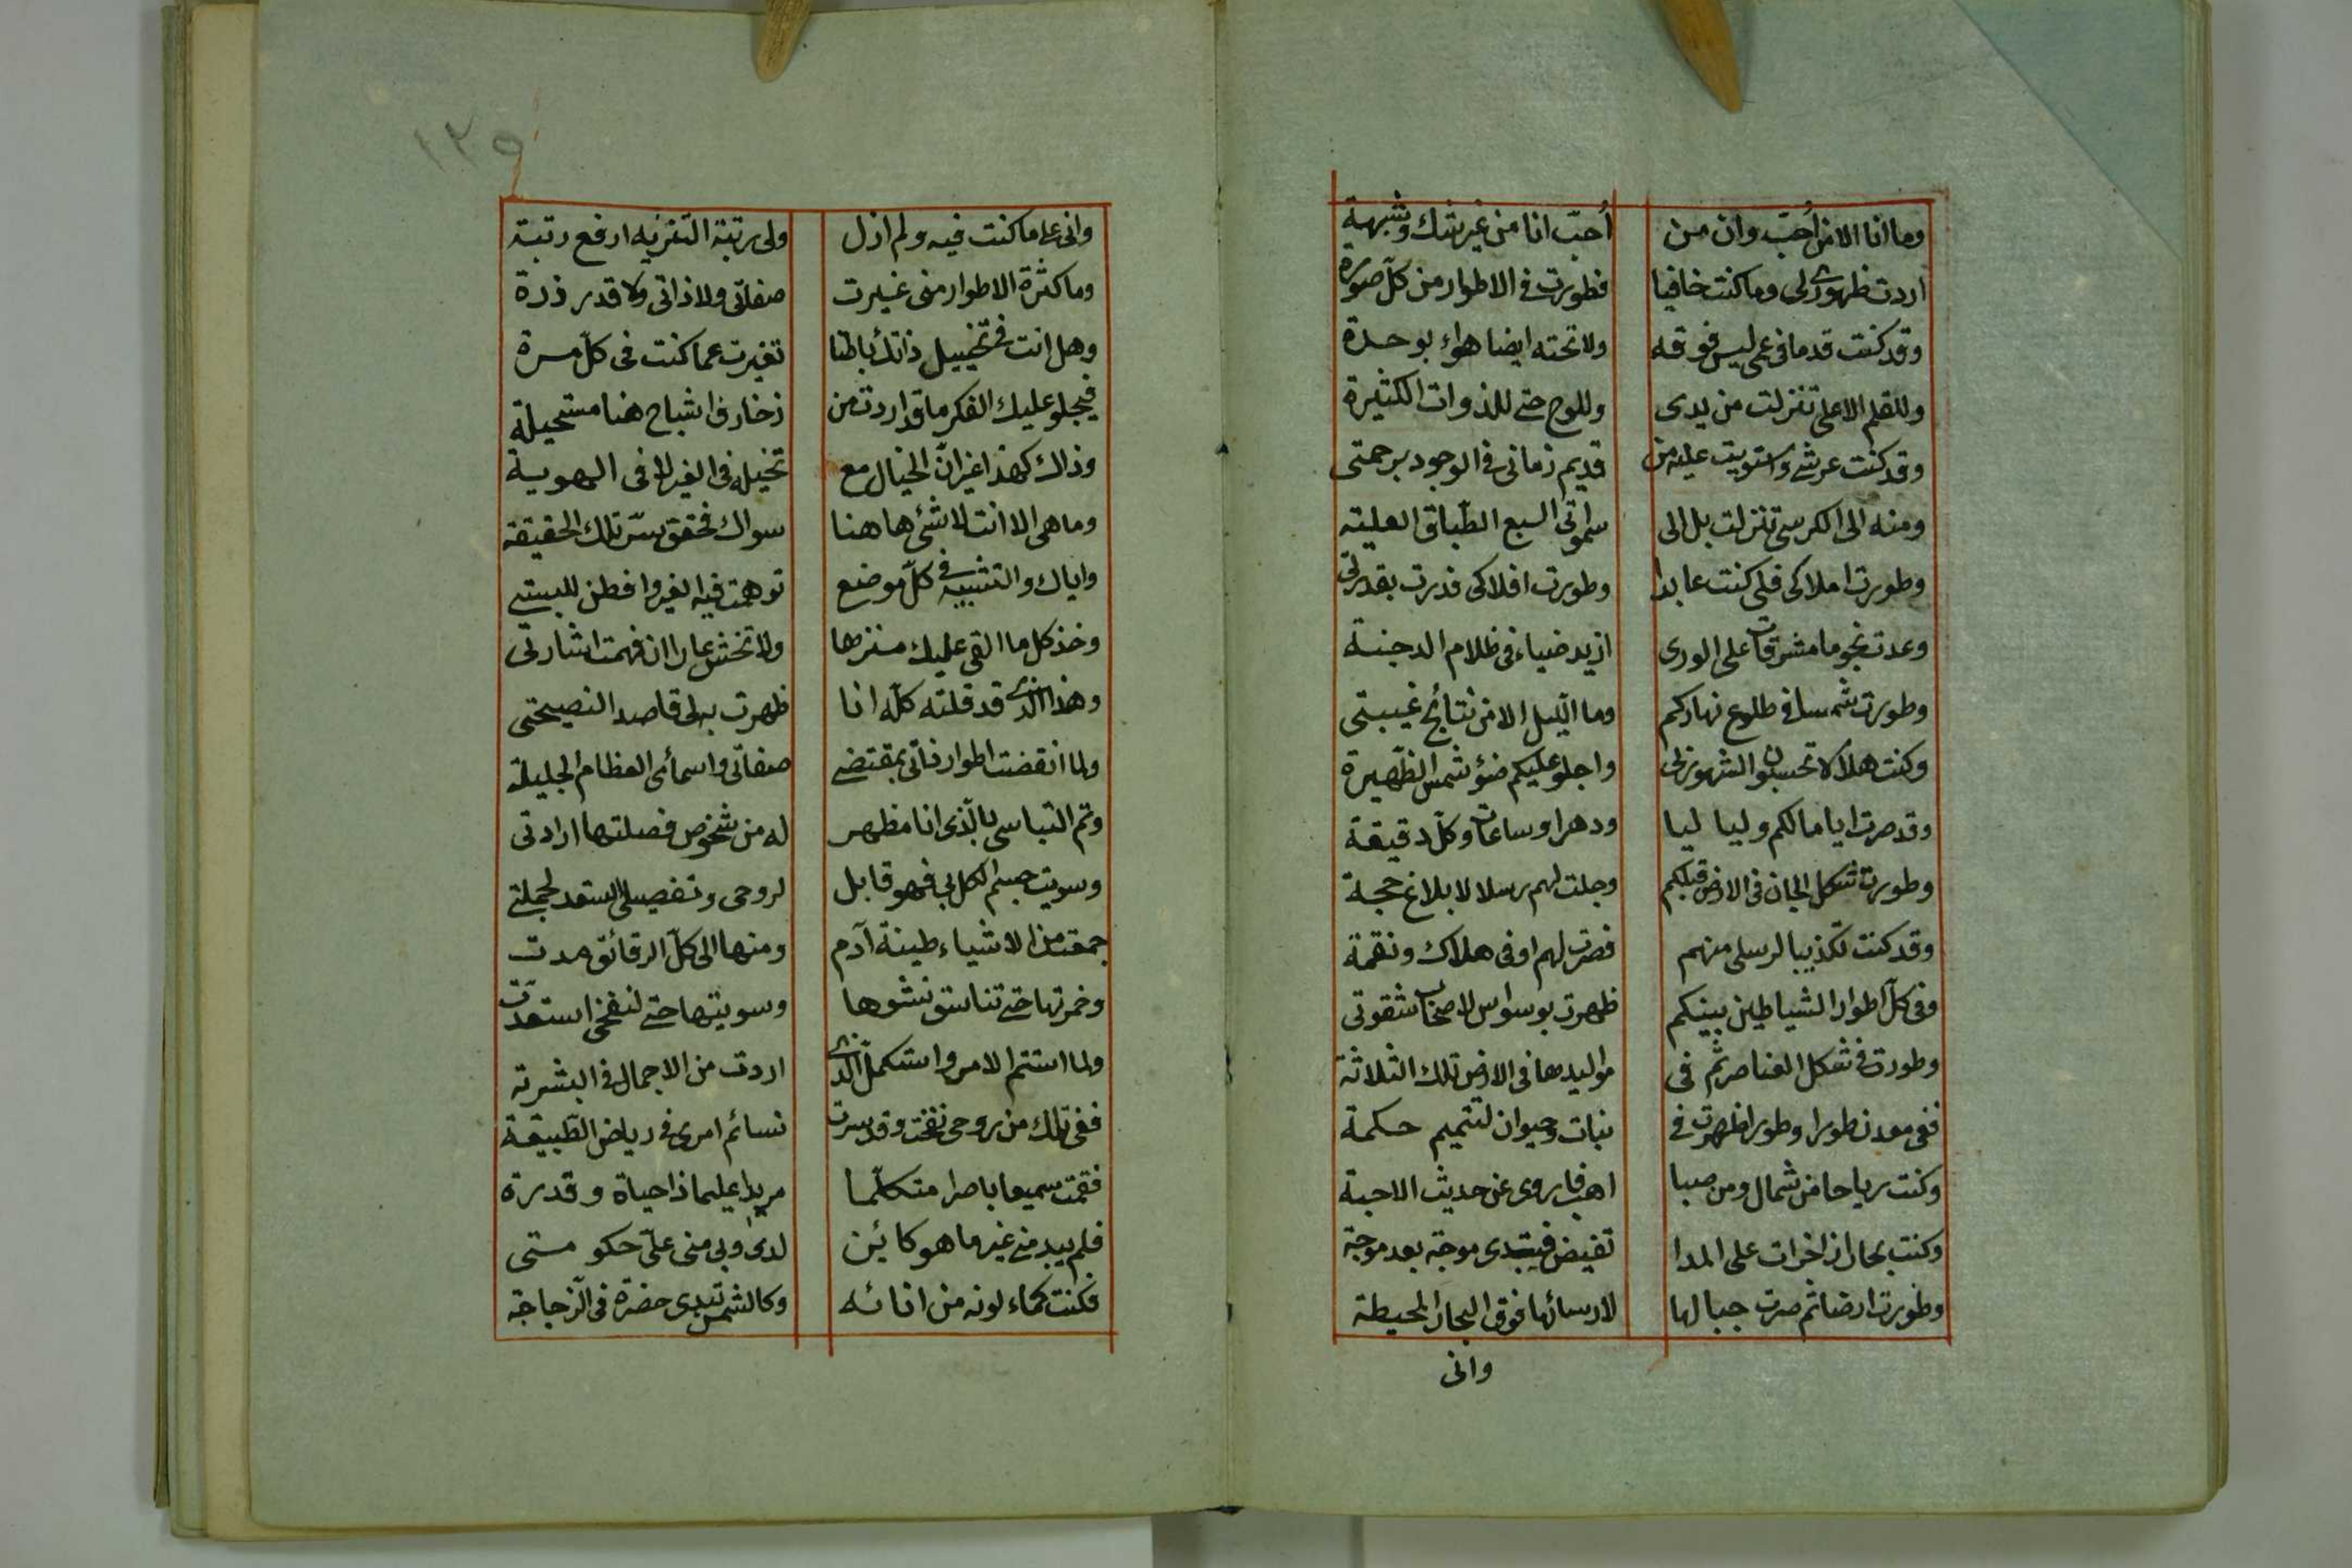 وما انا الا من اُحبّ وان من اُحبّ انا من غير شك وشبهة
اردت ظهورى لى وما كنت خافيا فطورت فى الاطوار من كلّ صورة
وقد كنت قدما فى عمى ليس فوقه ولا تحته ايضا هواء بوحدة
وللقلم الاعلى تنزلت من يدى وللوح حتى للذوات الكثيرة
وقد كنت عرشى واستويت عليه من قديم زمانى فى الوجود برحمتى
ومنه الى الكرسى تنزلت بل الى سمواتى السبع الطّباق العليته
وطورت املاكى فلى كنت عابدا وطورت افلاكى فدرت بقدرتى
وعدت نجوما مشرقات على الورى ازيد ضياء فى ظلام الدجنة
وطورت شمسا فى طلوع نهاركم وما الّيل الا من نتائج غيبتى
وكنت هلالا تحسبون الشهور لى واجلو عليكم ضؤ شمس الظّهيرة
وقد صرت اياما لكم وليا ليا ودهرا وساعات وكلّ دقيقة
وطورت شكل الجان فى الارض قبلكم وجلت لهم رسلا لابلاغ حجة
وقد كنت تكذيبا لرسلى منهم فصرت لهم اوفى هلاك ونقمة
وفى كلّ اطوار الشياطين بينكم ظهرت بوسواس لاصحاب شقوتى
وطورت فى شكل العناصر ثم فى مواليدها فى الارض تلك الثلاثة
ففى معدن طورا وطورا ظهرت فى نبات وحيوان لتتميم حكمة
وكنت رياحا من شمال ومن صبا اهب فاروى عن حديث الاحبة
وكنت بحارا زاخرات على المدا تفيض فيبتدى موجة بعد موجة
وطورت ارضا ثم صرت جبالها لارسائها فوق البحار المحيطة
وانى
١٣٥
وانى على ما كنت فيه ولم ازل ولى رتبة التنزيه ارفع رتبة
وما كثرة الاطوار منى غيرت صفاتى ولا ذاتى ولا قدر ذرة
وهل انت فى تخييل ذاتك باطنا تغيرت عما كنت فى كلّ مرة
فيجلو عليك الفكر ما قد اردت من زخارف اشباح هنا مستحيلة
وذاك كهذا غير انّ الخيال مع تخيله فى الغير لا فى الهوية
وما هى الا انت لا شئ ها هنا سواك فحقق سرّ تلك الحقيقة
واياك والتشبيه فى كلّ موضع توهمت فيه الغير وافطن للبستى
وخذ كل ما القى عليك منزها ولا تخش عارا ان فهمت اشارتى
وهذا الذى قد قلته كلّه انا ظهرت به لى قاصدا لنصيحتى
ولما انقضت اطوار ذاتى بمقتضى صفاتى واسمائى العظام الجليلة
وتم التباسى بالّذى انا مظهر له من شخوص فصلتها ارادتى
وسويت جسم الكل بى فهو قابل لروحى وتفصيلى استعد لجملتى
جمعت من الاشياء طينة آدم ومنها الى كلّ الرقائق مدت
وخمرتها حتى تناسق نشوها وسويتها حتى لنفخى استعدّت
ولما استتم الامر واستكمل الّذى اردت من الاجمال فى البشرته
ففى تلك من روحى نفخت وقد سرت نسائم امرى فى رياض الطّبيعة
فقمت سميعا باصرا متكلّما مريدا عليما ذا حياة وقدرة
فلم يبد منى غير ما هو كائن لدىّ وبى منى علىّ حكو متى
فكنت كماء لونه من انائه وكالشمس تبدى خضرة فى الزّجاجة